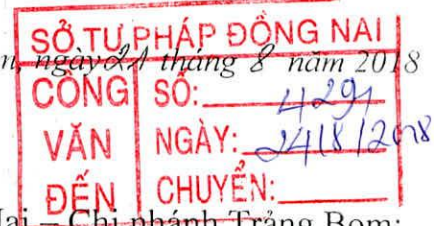 SỞ TƯ PHÁP ĐỒNG NAI
n, ngày 21 tháng 8 năm 2018
CÔNG VĂN ĐẾN
SỐ: 4291
NGÀY: 24/8/2018
CHUYỂN:
Nai – Chi nhánh Trảng Bom;